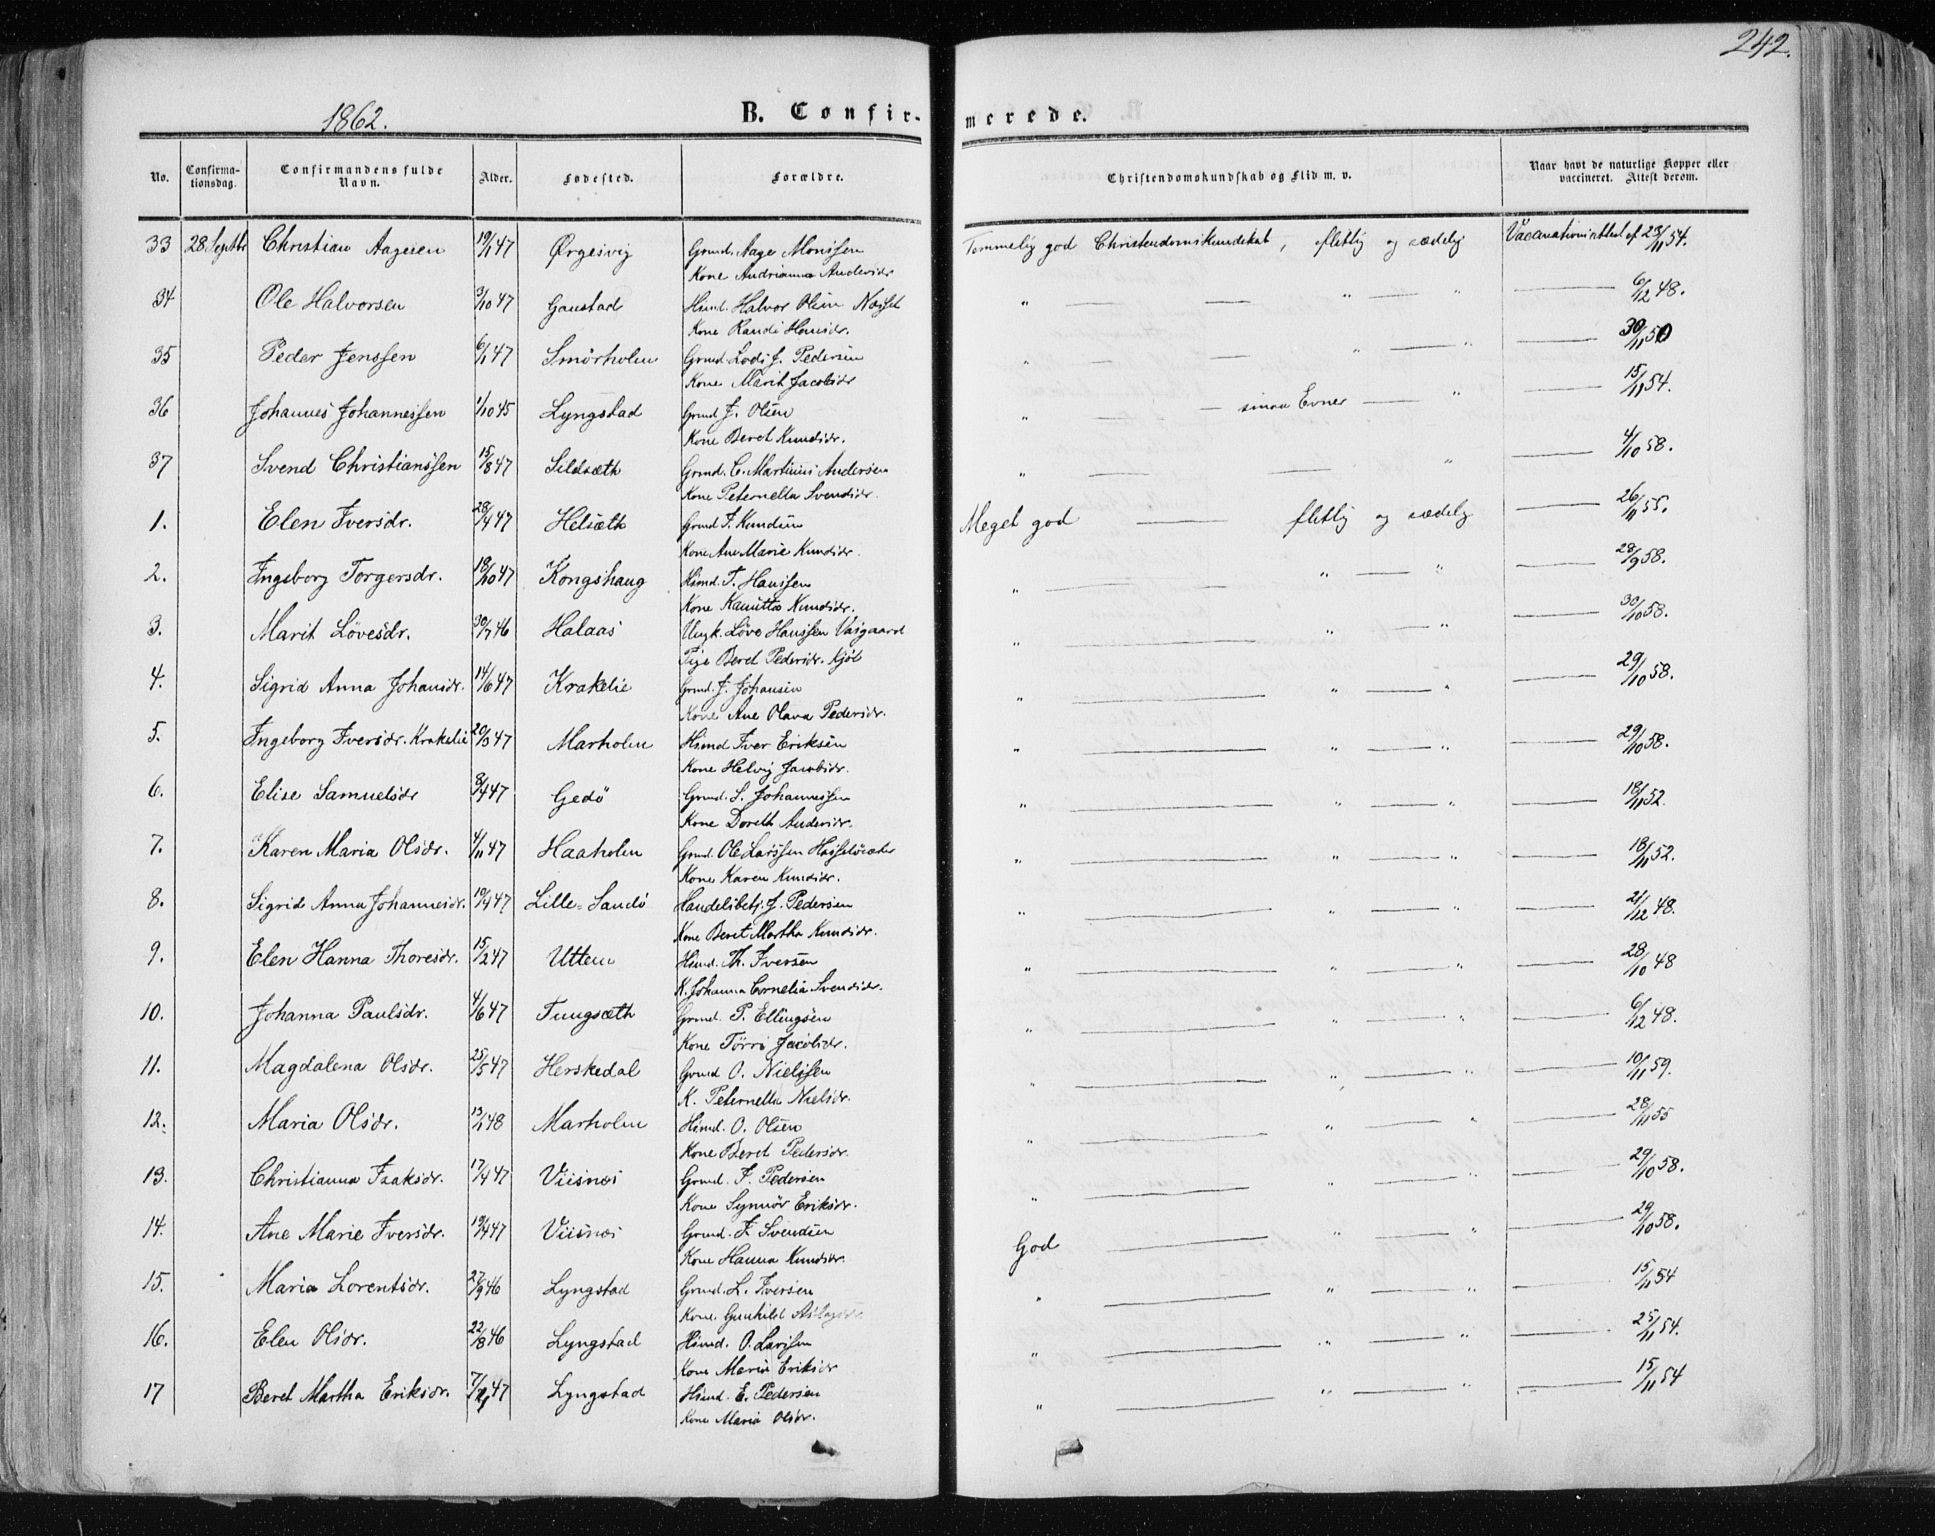 242.
1862.
B. Confirmerede.
No. Confirmationsdag. Confirmandens fulde Navn. Alder. Fødested. Forældre. Christendomskundskab og Flid m. v. Naar havt de naturlige Kopper eller vaccineret. Attest derom.
33 28 Septbr Christian Aagesen 19/1 47 Ørgesvig Grmd. Aage Monssen Temmelig god Christendomskundskab, flittig og sædelig Vaccinationsattest af 23/11 54.
Kone Andrianna Andersdr
34 Ole Halvorsen 3/10 47 Gaustad Hsmd. Halvor Olsen Næsset " — — " — " — 6/12 48.
Kone Randi Hansdr.
35 Peder Jenssen 6/1 47 Smørholm Grmd. J. Pedersen " — — " — " — 30/11 50
Kone Marit Jacobsdr
36 Johannes Johannessen 1/10 45 Lyngstad Grmd. J. Olsen " — — smaa Evner — " — 15/11 54.
Kone Beret Knudsdr.
37 Svend Christianssen 15/8 47 Sildsæth Grmd. C. Martinus Andersen " — — " — 4/10 58.
Kone Peternella Svendsdr.
1. Elen Iversdr. 28/4 47 Helsæth Grmd I. Knudsen Meget god — flittig og sædelig — 26/11 55.
Kone Ane Marie Knudsdr.
2. Ingeborg Torgersdr. 18/10 47 Kongshaug Hsmd. T. Hanssen " — " — " — 28/9 58.
Kone Kanutta Knudsdr.
3. Marit Løvesdr. 30/7 46 Halaas Ungk. Løve Hanssen Vaagaard " — " — " — 30/10 58.
Pige Beret Pedersdr. Kjøl
4. Sigrid Anna Johansdr. 14/6 47 Krakelie Grmd. J. Johansen " — " — " — 29/10 58.
Kone Ane Olava Pedersdr.
5. Ingeborg Iversdr. Krakelie 20/3 47 Marholm Hsmd Iver Eriksen " — " — " — 29/10 58.
Kone Helvig Jacobsdr.
6. Elise Samuelsdr 8/4 47 Gedø Grmd. S. Johannessen " — " — " — 18/11 52.
Kone Doreth Andersdr.
7. Karen Maria Olsdr. 4/11 47 Haaholm Grmd. Ole Larssen " — " — " — 18/11 52.
Kone Karen Knudsdr.
8. Sigrid Anna Johannesdr. 19/4 47 Lille-Sandø Handelsbetj. J. Pedersen " — " — " — 21/12 48.
Kone Beret Martha Knudsdr.
9. Elen Hanna Thoresdr. 15/2 47 Uttem Hsmd. Th. Iversen " — " — " — 28/10 48
K. Johanna Cornelia Svendsdr.
10. Johanna Paulsdr. 4/6 47 Tungsæth Grmd. P. Ellingsen " — " — " — 6/12 48.
Kone Tørri Jacobsdr.
11. Magdalena Olsdr. 25/5 47 Herskedal Grmd O. Nielssen " — " — " — 10/11 59.
K. Peternella Nielsdr.
12. Maria Olsdr. 13/1 48 Marholm Hsmd. O. Olsen " — " — " — 28/11 55
Kone Beret Pedersdr.
13. Christianna Isaksdr. 17/4 47 Viisnæs Grmd. I. Pedersen " — " — " — 29/10 58.
Kone Synnør Eriksdr.
14. Ane Marie Iversdr. 19/4 47 Viisnæs Grmd. I. Svendsen God — " — " — 29/10 58.
Kone Hanna Knudsdr.
15. Maria Lorentsdr. 27/9 46 Lyngstad Grmd. L. Iversen " — " — " — 15/11 54
Kone. Gunhild Aslagsdr.
16. Elen Olsdr. 22/8 46 Lyngstad Hsmd. O. Larssen " — " — " — 25/11 54.
Kone Maria Eriksdr
17 Beret Martha Eriksdr. 47 Lyngstad Hsmd. E. Pedersen " — " — " — 15/11 54
Kone Maria Olsdr.